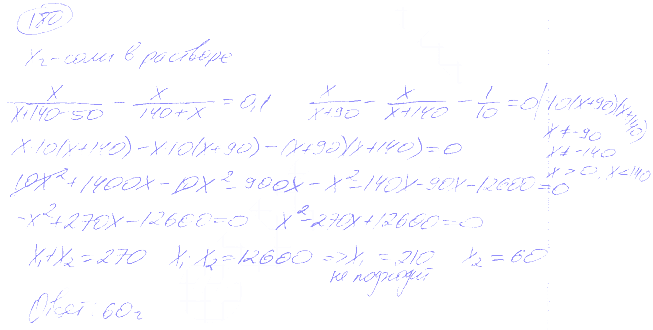 180
x г – соли в растворе
x/(x+140-50) - x/(140+x) = 0,1   x/(x+90) - x/(x+140) - 1/10 = 0 | 10(x+90)(x+140)
x·10(x+140) - x·10(x+90) - (x+90)(x+140) = 0   x ≠ -90
x ≠ -140
10x² + 1400x - 10x² - 900x - x² - 140x - 90x - 12600 = 0   x > 0, x < 140
-x² + 270x - 12600 = 0   x² - 270x + 12600 = 0
x₁ + x₂ = 270   x₁·x₂ = 12600 => x₁ = 210   x₂ = 60
не подходит
Ответ: 60 г